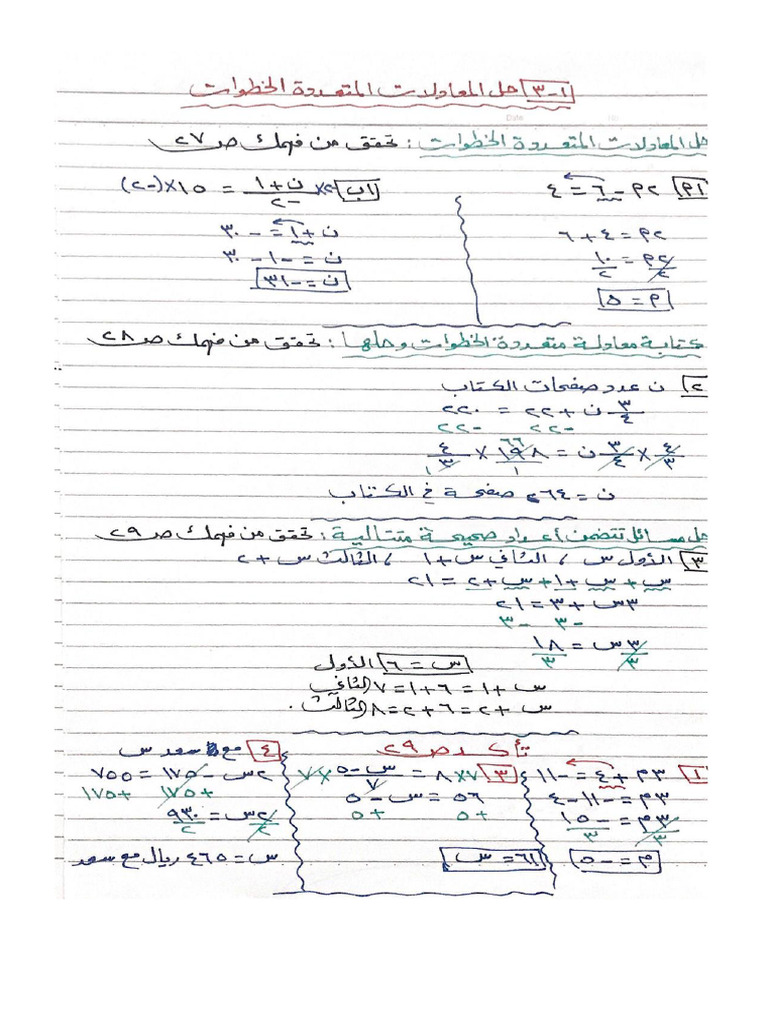 ١-٣ حل المعادلات المتعددة الخطوات
Date
No
حل المعادلات المتعددة الخطوات : تحقق من فهمك ص ٢٧
١أ ٢م - ٦ = ٤
٢م = ٤ + ٦
٢م/٢ = ١٠/٢
م = ٥
١ب ٢× (ن + ١)/-٢ = ١٥ × (-٢)
ن + ١ = -٣٠
ن = -١ - ٣٠
ن = -٣١
كتابة معادلة متعددة الخطوات وحلها : تحقق من فهمك ص ٢٨
٢ ن عدد صفحات الكتاب
٣/٤ ن + ٢٢ = ٢٢٠
-٢٢ -٢٢
٤/٣ × ٣/٤ ن = ١٩٨/١ × ٤/٣
٦٦
١
ن = ٢٦٤ صفحة في الكتاب
حل مسائل تتضمن أعداد صحيحة متتالية : تحقق من فهمك ص ٢٩
٣ الأول س ، الثاني س + ١ ، الثالث س + ٢
س + س + ١ + س + ٢ = ٢١
٣س + ٣ = ٢١
-٣ -٣
٣س/٣ = ١٨/٣
س = ٦ الأول
س + ١ = ٦ + ١ = ٧ الثاني
س + ٢ = ٦ + ٢ = ٨ الثالث .
تأكد ص ٢٩
١ ٣م + ٤ = -١١
٣م = -١١ - ٤
٣م/٣ = -١٥/٣
م = -٥
٣ ٧× ٨ = (س - ٥)/٧ ×٧
٥٦ = س - ٥
+٥ +٥
٦١ = س
٤ مع سعد س
٢س - ١٧٥ = ٧٥٥
+١٧٥ +١٧٥
٢س/٢ = ٩٣٠/٢
س = ٤٦٥ ريال مع سعد